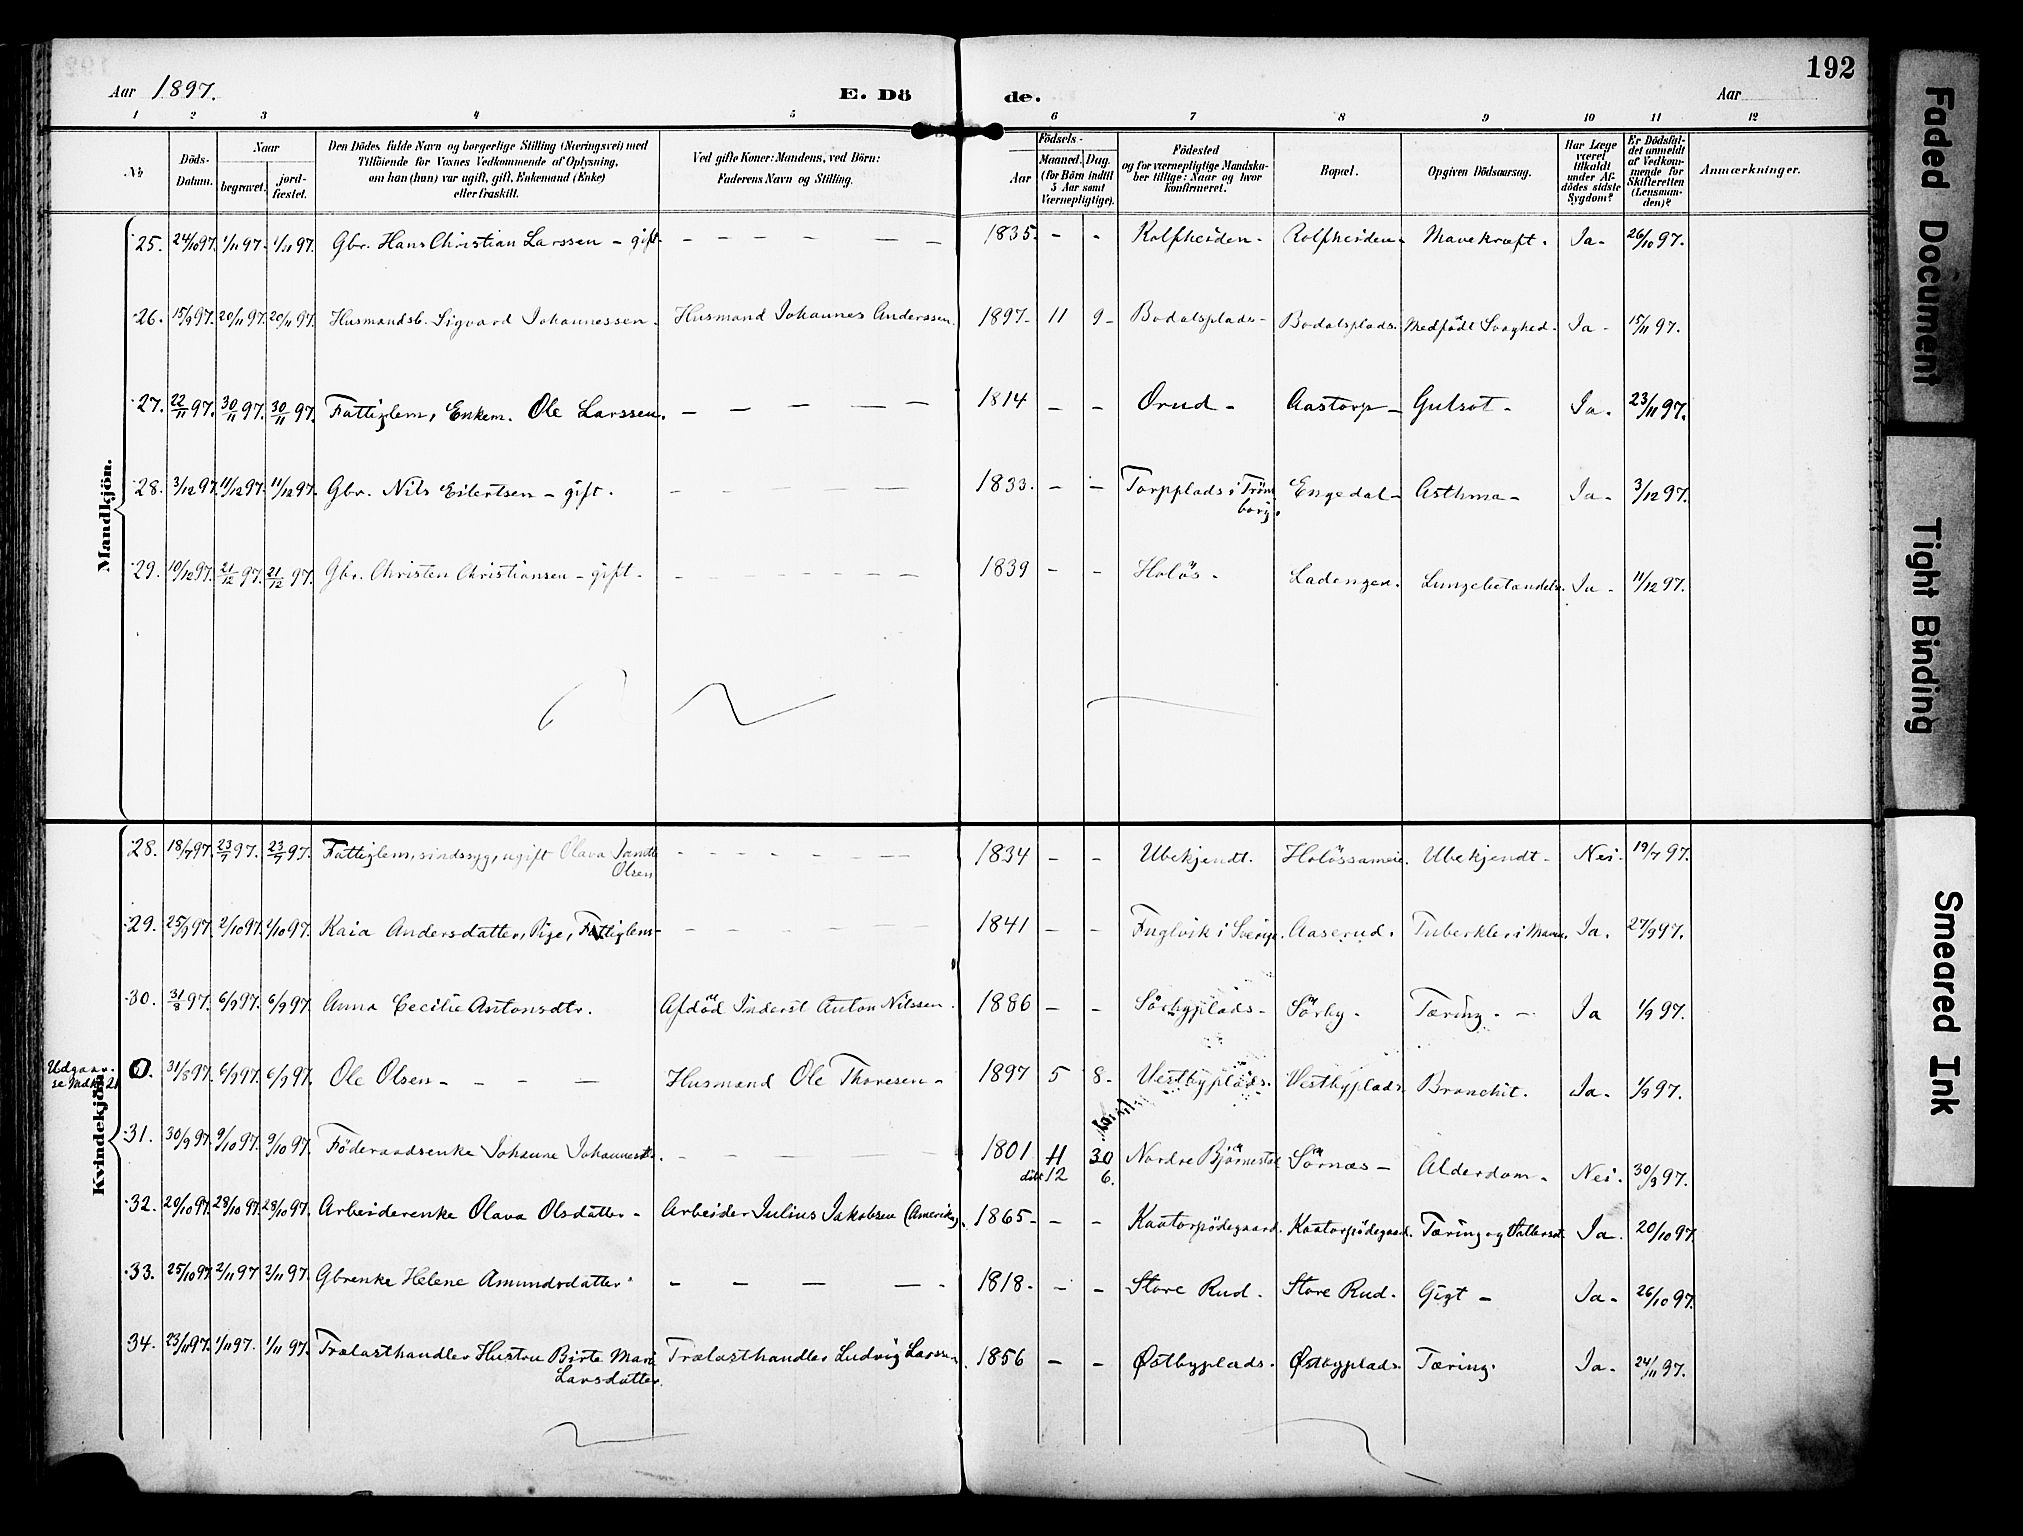 192
Aar 1897. E. Dö de. Aar
1 2 3 4 5 6 7 8 9 10 11 12
№
Döds-Datum.
Naar
begravet.
jord-fæstet.
Den Dödes fulde Navn og borgerlige Stilling (Næringsvei) med
Tilföiende for Voxnes Vedkommende af Oplysning,
om han (hun) var ugift, gift, Enkemand (Enke)
eller fraskilt.
Ved gifte Koner: Mandens, ved Börn:
Faderens Navn og Stilling.
Födsels-
Aar
Maaned. Dag.
(for Börn indtil
5 Aar samt
Værnepligtige).
Födested
og for værnepligtige Mandska-
ber tillige: Naar og hvor
konfirmeret.
Bopæl.
Opgiven Dödsaarsag.
Har Læge
været
tilkaldt
under Af-
dödes sidste
Sygdom?
Er Dödsfal-
det anmeldt
af Vedkom-
mende for
Skifteretten
(Lensman-
den)?
Anmærkninger.
Mandkjön.
25. 24/10 97. 1/11 97. 1/11 97. Gbr. Hans Christian Larssen - gift. - - - - - - 1835. - - Rolfheiden - Rolfheiden - Mavekræft. Ja - 26/10 97.
26. 15/9 97. 20/11 97. 20/11 97. Husmandsb. Sigvard Johannessen. Husmand Johannes Anderssen. 1897. 11 9 - Bodalsplads - Bodalsplads. Medfödt Svaghed. Ja - 15/11 97.
27. 22/11 97. 30/11 97. 30/11 97. Fattiglem, Enkem. Ole Larssen. - - - - - 1814 - - Orud - Aastorp - Gulsot - Ja. 23/11 97.
28. 3/12 97. 11/12 97. 11/12 97. Gbr. Nils Eilertsen - gift. - - - - - - 1833. - - Torpplads i Tröm
borg. Engedal - Asthma - Ja - 3/12 97.
29. 10/12 97. 21/12 97. 21/12 97. Gbr. Christen Christiansen - gift. - - - - - - 1839 - - Holös - Ladengen. Lungebetændelse. Ja - 11/12 97.
Kvindekjön
28. 18/7 97. 23/7 97. 23/7 97. Fattiglem, sindssyg, ugift Olava
Olsen - - - - - - 1834 - - Ubekjendt. Holössameie. Ubekjendt - Nei. 19/7 97.
29. 25/9 97. 2/10 97. 2/10 97. Kaia Andersdatter, Pige, Fattiglem - - - - - - - 1841 - - Fuglvik i Sverige. Aaserud. Tuberkler i Maven. Ja. 27/9 97.
30. 31/8 97. 6/9 97. 6/9 97. Anna Cecilie Antonsdtr. Afdöd Inderst Anton Nilssen. 1886 - - Sörbyplads - Sörby. Tæring. - Ja 1/9 97.
Udgaar.
se
0. 31/8 97. 6/9 97. 6/9 97. Ole Olsen - - - - Husmand Ole Thoresen - 1897 5 8 - Vestbyplads. Vestbyplads. Bronchit. Ja. 1/9 97.
31. 30/9 97. 9/10 97. 9/10 97. Föderaadsenke Johanne Johannesdtr. - - - - - 1801 11 30 Nordre Björnestad Sörnæs - Alderdom. Nei. 30/9 97.
döbt 12 6.
32. 20/10 97. 28/10 97. 28/10 97. Arbeiderenke Olava Olsdatter - Arbeider Julius Jakobsen (Amerika). 1865 - - - Kaatorpödegaard. Kaatorpödegaard. Tæring og Vattersot. Ja. 20/10 97.
33. 25/10 97. 2/11 97 2/11 97. Gbrenke Helene Amundsdatter. - - - - - 1818. - - Store Rud. Store Rud. Gigt - Ja - 26/10 97.
34. 23/11 97. 1/11 97. 1/11 97. Trælasthandler Hustru Birte Marie
Larsdatter. Trælasthandler Ludvig Larssen. 1856 - - Østbyplads. Østbyplads. Tæring. Ja - 24/11 97.
Faded Document
Tight Binding
Smeared Ink